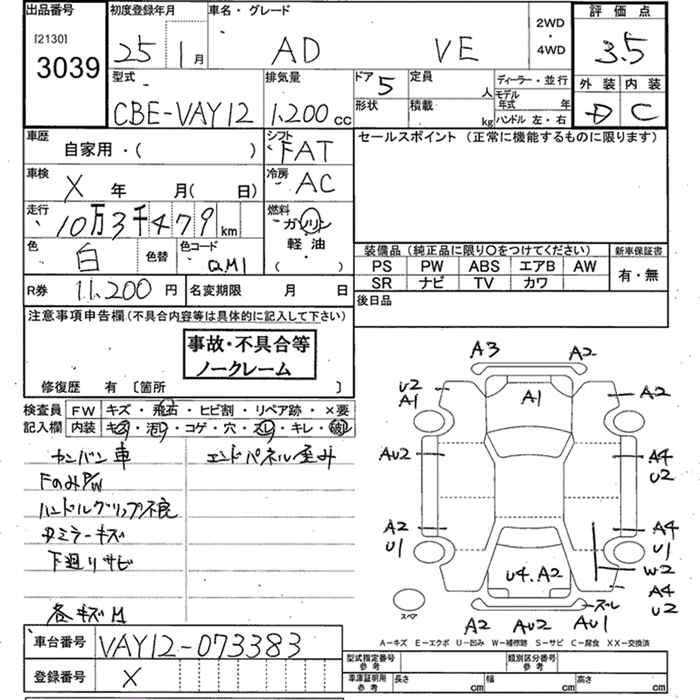 出品番号
[2130]
3039
初度登録年月
25 1月
車名・グレード
AD VE
2WD
・
4WD
評価点
3.5
外装 内装
D C
型式
CBE-VAY12
排気量
1,200cc
ドア 5
形状
定員 人
積載 kg
ディーラー・並行
モデル年式 年
ハンドル 左・右
車歴
自家用・( )
シフト
FAT
セールスポイント (正常に機能するものに限ります)
車検
X 年 月( 日)
冷房
AC
走行
10万3千479km
燃料
ガソリン
軽油
( )
色
白
色替
色コード
QM1
装備品 (純正品に限り〇をつけてください)
PS PW ABS エアB AW
SR ナビ TV カワ
新車保証書
有・無
R券 11,200円
名変期限 月 日
後日品
注意事項申告欄(不具合内容等は具体的に記入して下さい)
事故・不具合等
ノークレーム
修復歴 有〔箇所 〕
検査員
記入欄
FW キズ・飛石・ヒビ割・リペア跡・×要
内装 キズ・汚れ・コゲ・穴・スレ・キレ・破れ
カンバン車
FのみP/W
ハンドルグリップ不良
タミラーキズ
下廻りサビ
各キズM
エンドパネル歪み
A3
A2
U2
A1
A1
A2
AU2
A4
U2
A2
U1
A4
U1
W2
U4.A2
A4
U2
スペア
スレ
A2 AU2 AU1
A-キズ E-エクボ U-凹み W-補修跡 S-サビ C-腐食 XX-交換済
車台番号 VAY12-073383
登録番号 X
型式指定番号
参考
類別区分番号
参考
車庫証明用
参考
長さ cm 幅 cm 高さ cm